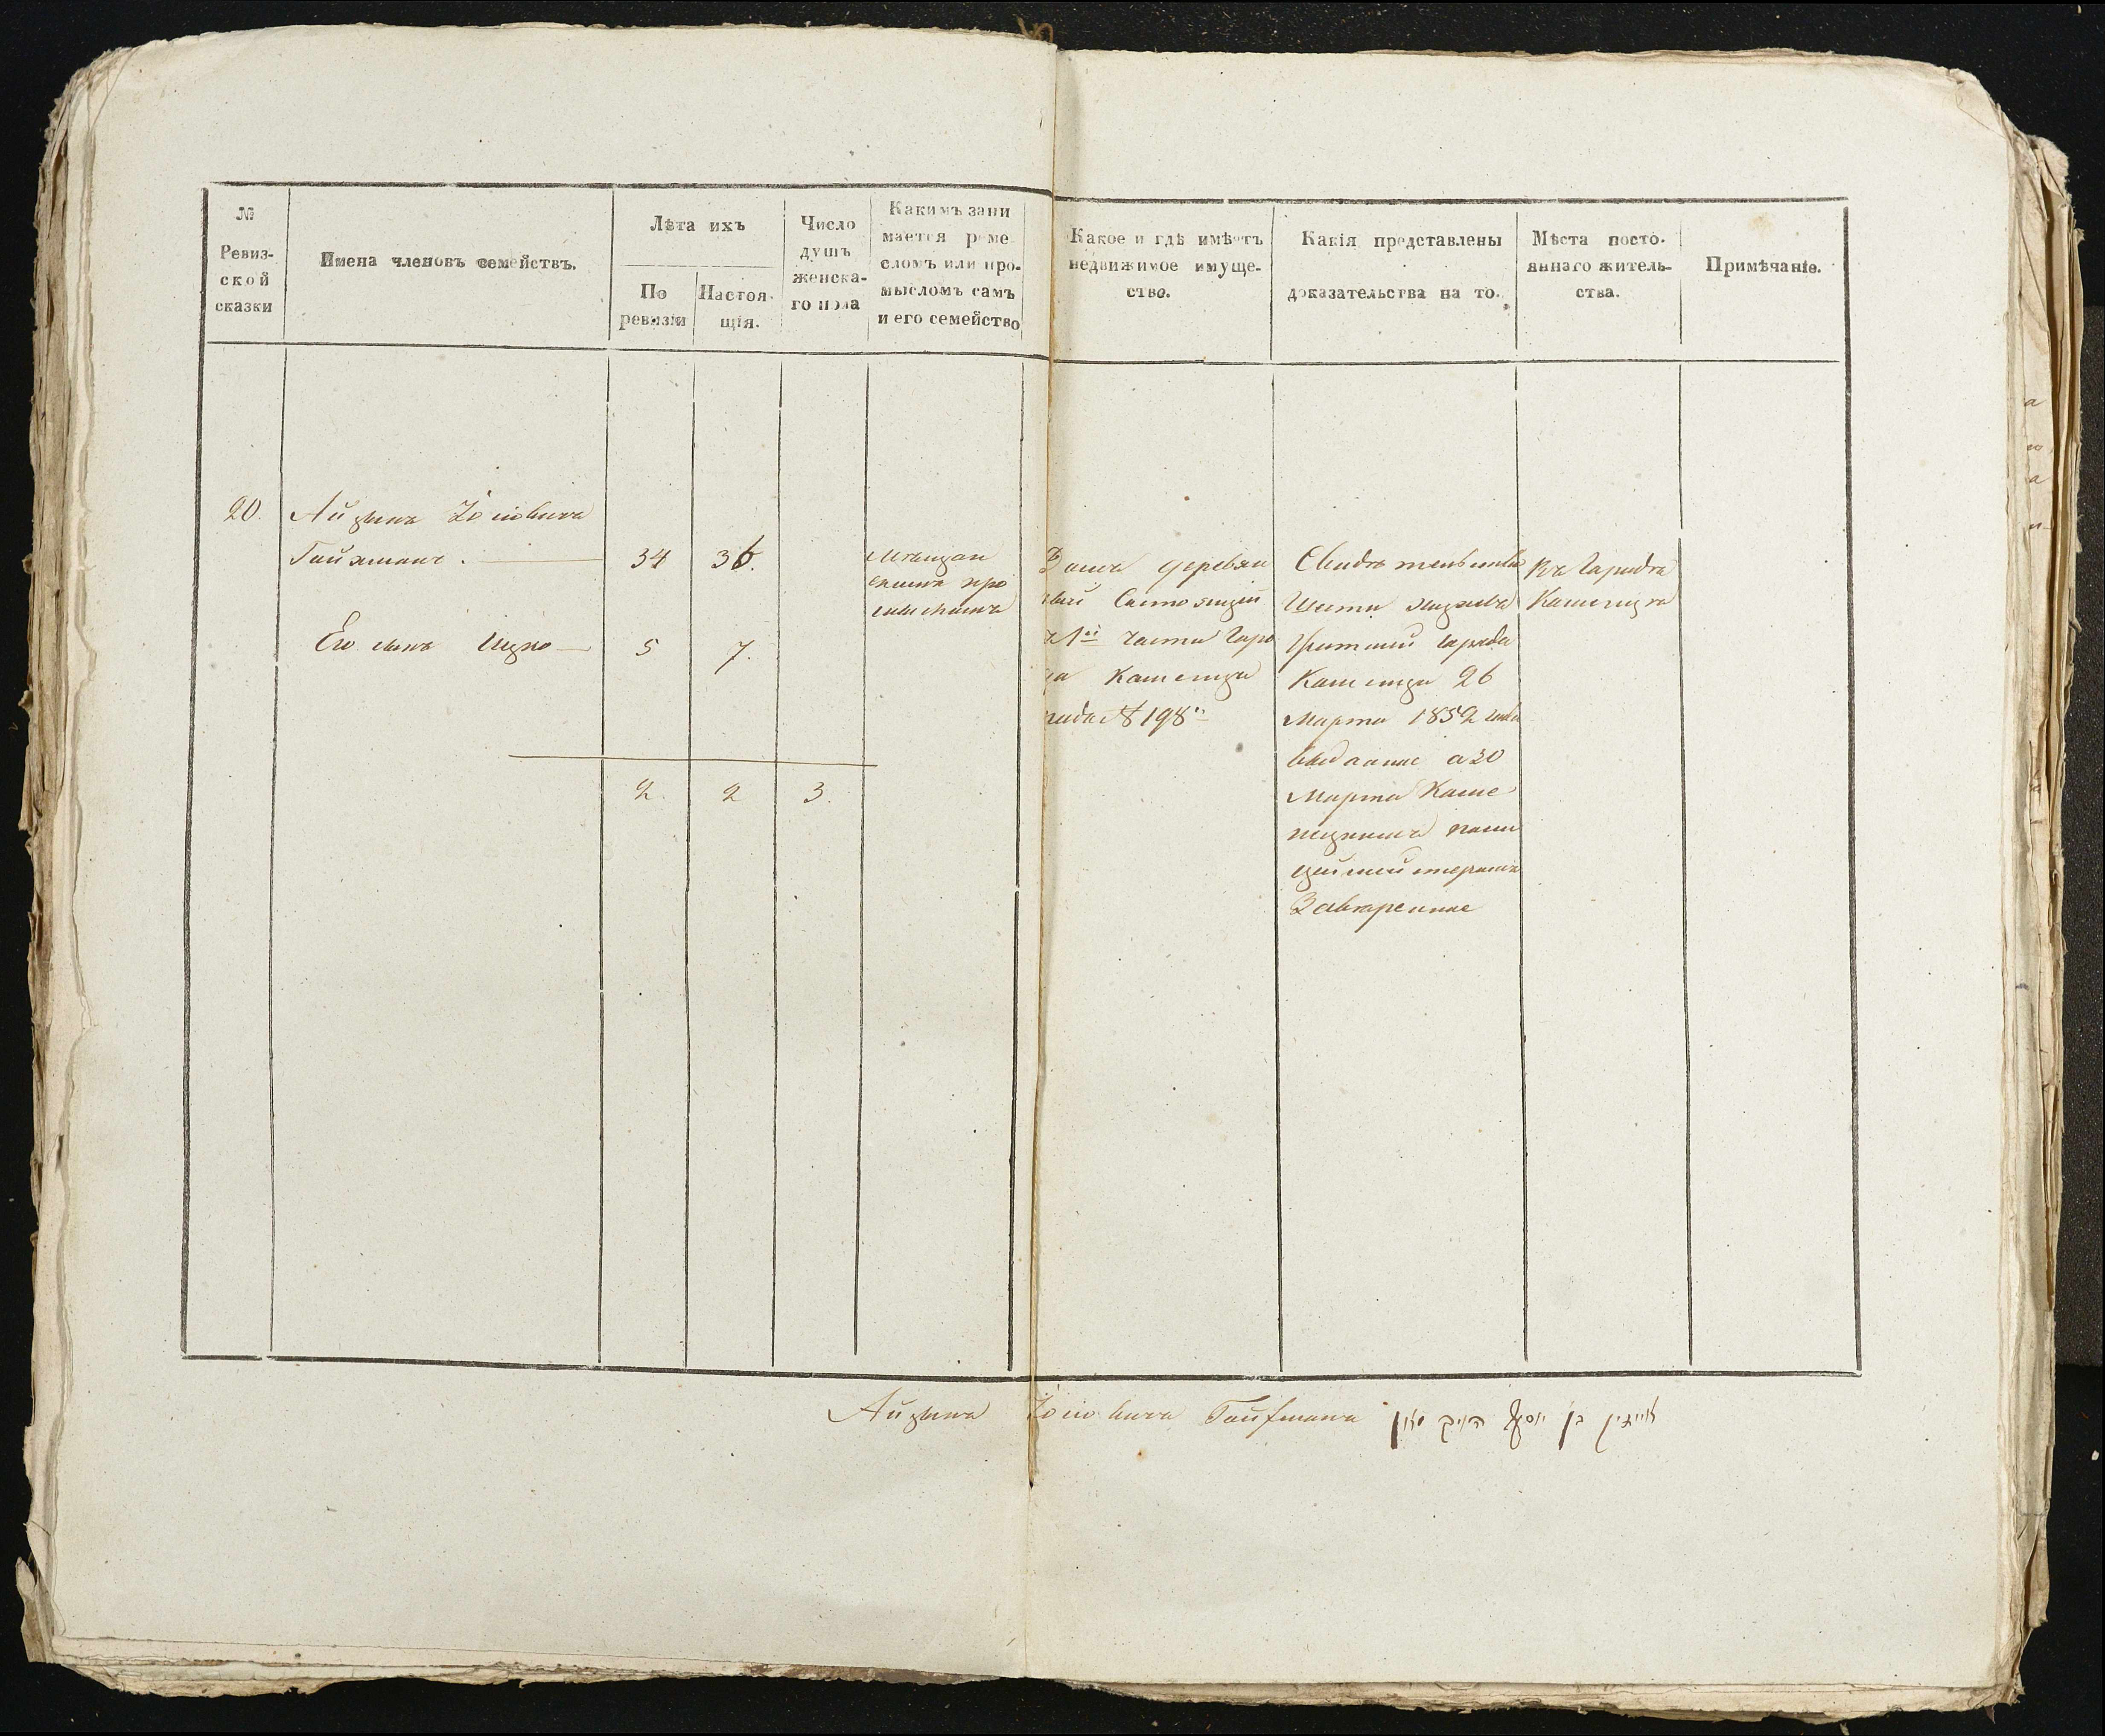 №
Ревиз-
ской
сказки
Имена членовъ семействъ.
Лѣта ихъ
По
ревизіи
Настоя-
щія.
Число
душъ
женска-
го пола
Какимъ зани
мается реме-
сломъ или про-
мысломъ самъ
и его семейство
Какое и гдѣ имѣетъ
недвижимое имуще-
ство.
Какія представлены
доказательства на то.
Мѣста посто-
яннаго житель-
ства.
Примѣчаніе.
20. Айзикъ Іосіовичъ
Гойхманъ. 34 36.
Его сынъ Ицко 5 7.
2. 2 3.
Мѣщан
скимъ про
мысломъ
Домъ деревян
ный Состоящій
въ 1й части горо
да Каменца
подъ № 198м
Свидѣтельство
Шести жидовъ
города
Каменца 26
Марта 1852 года
выданное а 30
Марта Каме
нецкимъ поли
цеймейстеромъ
Завѣренное
Въ Городѣ
Каменцѣ
Айзикъ Іосіовичъ Гойхманъ אייזיק בן יוסף הויך מאן